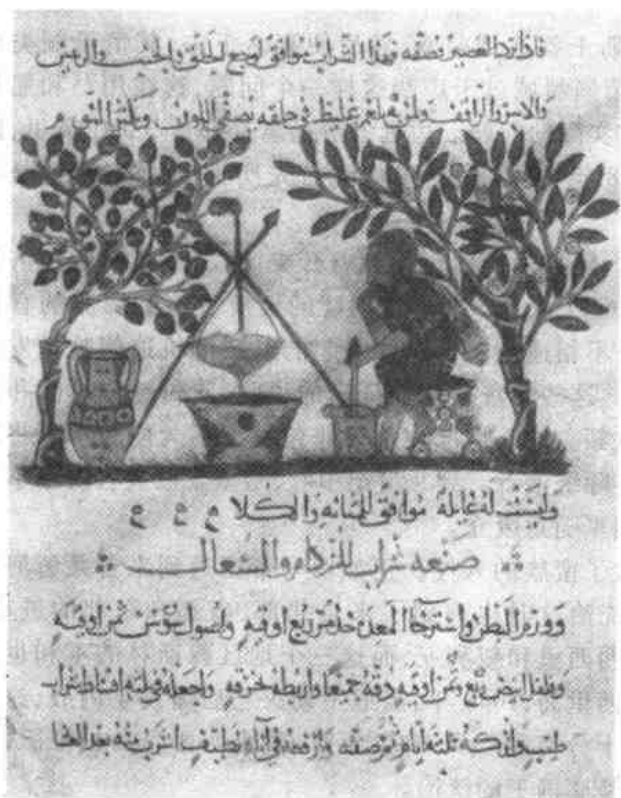 فاذا برد العصير فصفه فهذا الشراب موافق لوجع الحلق والجنب
غليظ في حلقه يصفي اللون ويكثر النوم م
وليست له غايلة موافق للمثانه والكلا
صنعه شراب للزكام والسعال
وورم البطن واسترخا المعده خذ مر ربع اوقيه واصول سوسن ثمن اوقيه
وفلفل ابيض ربع وثمن اوقيه دقه جميعا واربطه بخرقه واجعله في اقساط شراب
طيب واتركه ثلثه أيام ثم صفه وارفعه في اناء نظيف اشرب منه بعد العشا